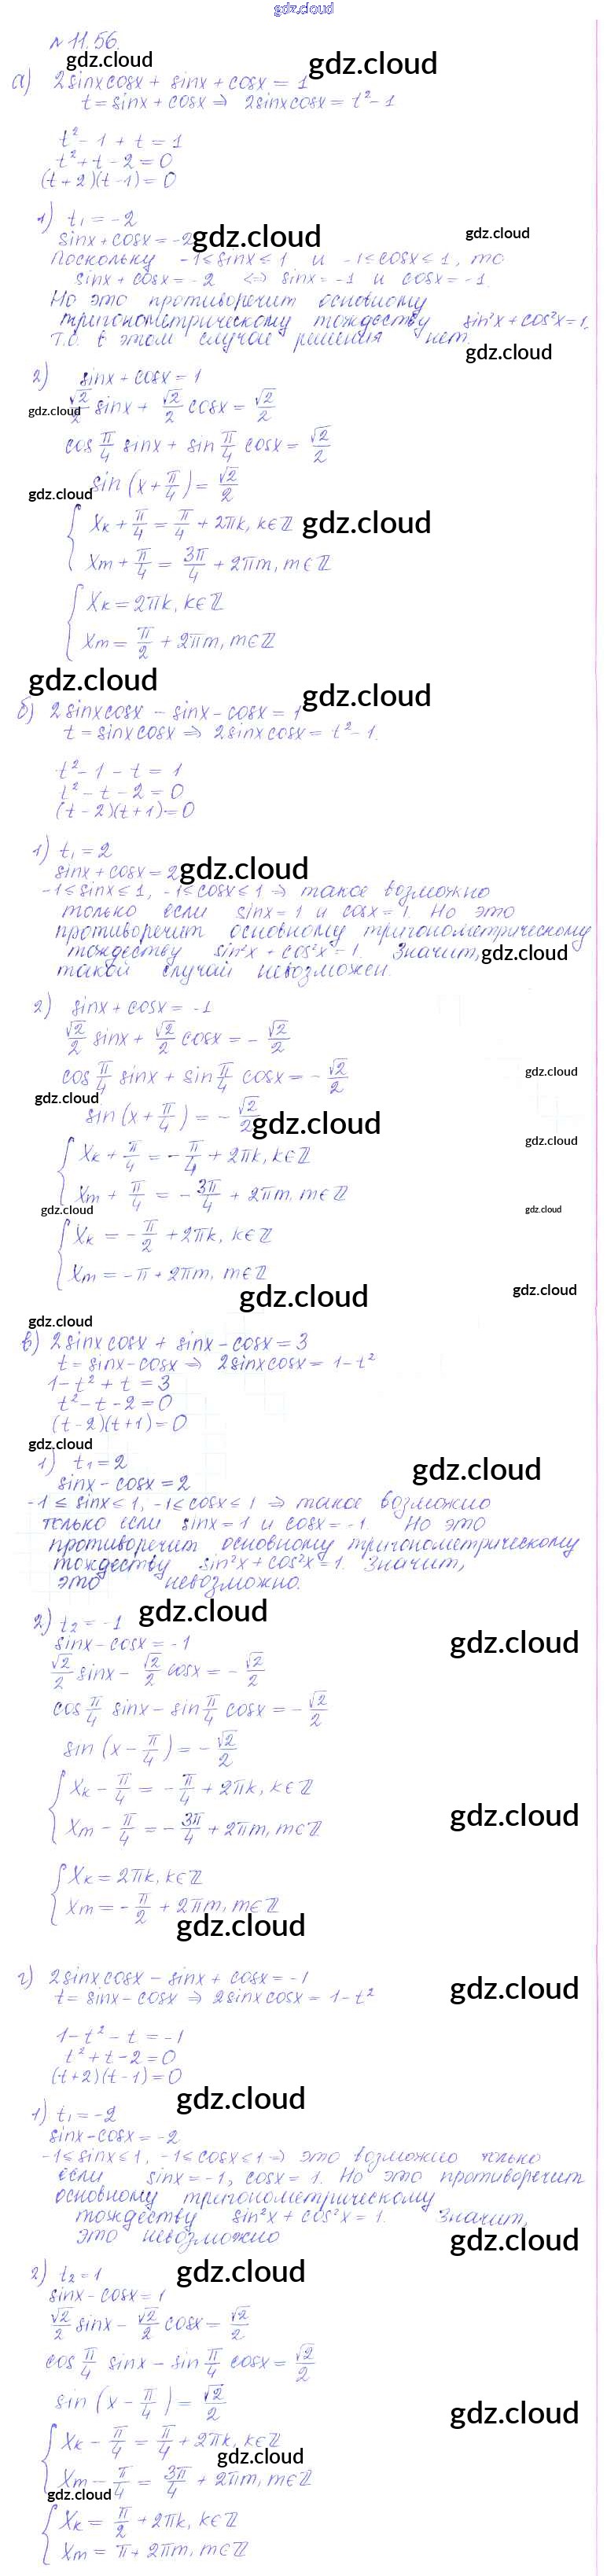 gdz.cloud
№ 11.56.
gdz.cloud gdz.cloud
а) 2sinxcosx + sinx + cosx = 1
t = sinx + cosx ⇒ 2sinxcosx = t² - 1
t² - 1 + t = 1
t² + t - 2 = 0
(t + 2)(t - 1) = 0
1) t₁ = -2
gdz.cloud gdz.cloud
sinx + cosx = -2
Поскольку -1 ≤ sinx ≤ 1 и -1 ≤ cosx ≤ 1, то
sinx + cosx = -2 ⇔ sinx = -1 и cosx = -1.
Но это противоречит основному
тригонометрическому тождеству sin²x + cos²x = 1.
Т.о. в этом случае решения нет.
gdz.cloud
2) sinx + cosx = 1
√2/2 sinx + √2/2 cosx = √2/2
gdz.cloud
cos π/4 sinx + sin π/4 cosx = √2/2
sin (x + π/4) = √2/2
gdz.cloud
{ Xk + π/4 = π/4 + 2πk, k∈ℤ
gdz.cloud
Xm + π/4 = 3π/4 + 2πm, m∈ℤ
{ Xk = 2πk, k∈ℤ
Xm = π/2 + 2πm, m∈ℤ
gdz.cloud gdz.cloud
б) 2sinxcosx - sinx - cosx = 1
t = sinxcosx ⇒ 2sinxcosx = t² - 1.
t² - 1 - t = 1
t² - t - 2 = 0
(t - 2)(t + 1) = 0
1) t₁ = 2
sinx + cosx = 2
gdz.cloud
-1 ≤ sinx ≤ 1, -1 ≤ cosx ≤ 1 ⇒ такое возможно
только если sinx = 1 и cosx = 1. Но это
противоречит основному тригонометрическому
тождеству sin²x + cos²x = 1. Значит,
gdz.cloud
такой случай невозможен.
2) sinx + cosx = -1
√2/2 sinx + √2/2 cosx = - √2/2
gdz.cloud
cos π/4 sinx + sin π/4 cosx = - √2/2
gdz.cloud
sin (x + π/4) = - √2/2
gdz.cloud
gdz.cloud
{ Xk + π/4 = - π/4 + 2πk, k∈ℤ
Xm + π/4 = - 3π/4 + 2πm, m∈ℤ
gdz.cloud gdz.cloud
{ Xk = - π/2 + 2πk, k∈ℤ
Xm = -π + 2πm, m∈ℤ
gdz.cloud gdz.cloud
gdz.cloud
в) 2sinxcosx + sinx - cosx = 3
t = sinx - cosx ⇒ 2sinxcosx = 1 - t²
1 - t² + t = 3
t² - t - 2 = 0
(t - 2)(t + 1) = 0
gdz.cloud
1) t₁ = 2
gdz.cloud
sinx - cosx = 2
-1 ≤ sinx ≤ 1, -1 ≤ cosx ≤ 1 ⇒ такое возможно
только если sinx = 1 и cosx = -1. Но это
противоречит основному тригонометрическому
тождеству sin²x + cos²x = 1. Значит,
это невозможно.
gdz.cloud
2) t₂ = -1
sinx - cosx = -1
gdz.cloud
√2/2 sinx - √2/2 cosx = - √2/2
cos π/4 sinx - sin π/4 cosx = - √2/2
sin (x - π/4) = - √2/2
{ Xk - π/4 = - π/4 + 2πk, k∈ℤ
gdz.cloud
Xm - π/4 = - 3π/4 + 2πm, m∈ℤ
{ Xk = 2πk, k∈ℤ
Xm = - π/2 + 2πm, m∈ℤ
gdz.cloud
г) 2sinxcosx - sinx + cosx = -1
gdz.cloud
t = sinx - cosx ⇒ 2sinxcosx = 1 - t²
1 - t² - t = -1
t² + t - 2 = 0
(t + 2)(t - 1) = 0
gdz.cloud
1) t₁ = -2
sinx - cosx = -2
-1 ≤ sinx ≤ 1, -1 ≤ cosx ≤ 1 ⇒ это возможно только
если sinx = -1, cosx = 1. Но это противоречит
основному тригонометрическому
тождеству sin²x + cos²x = 1. Значит,
это невозможно
gdz.cloud
gdz.cloud
2) t₂ = 1
sinx - cosx = 1
√2/2 sinx - √2/2 cosx = √2/2
cos π/4 sinx - sin π/4 cosx = √2/2
sin (x - π/4) = √2/2
gdz.cloud
{ Xk - π/4 = π/4 + 2πk, k∈ℤ
gdz.cloud
Xm - π/4 = 3π/4 + 2πm, m∈ℤ
gdz.cloud
{ Xk = π/2 + 2πk, k∈ℤ
Xm = π + 2πm, m∈ℤ